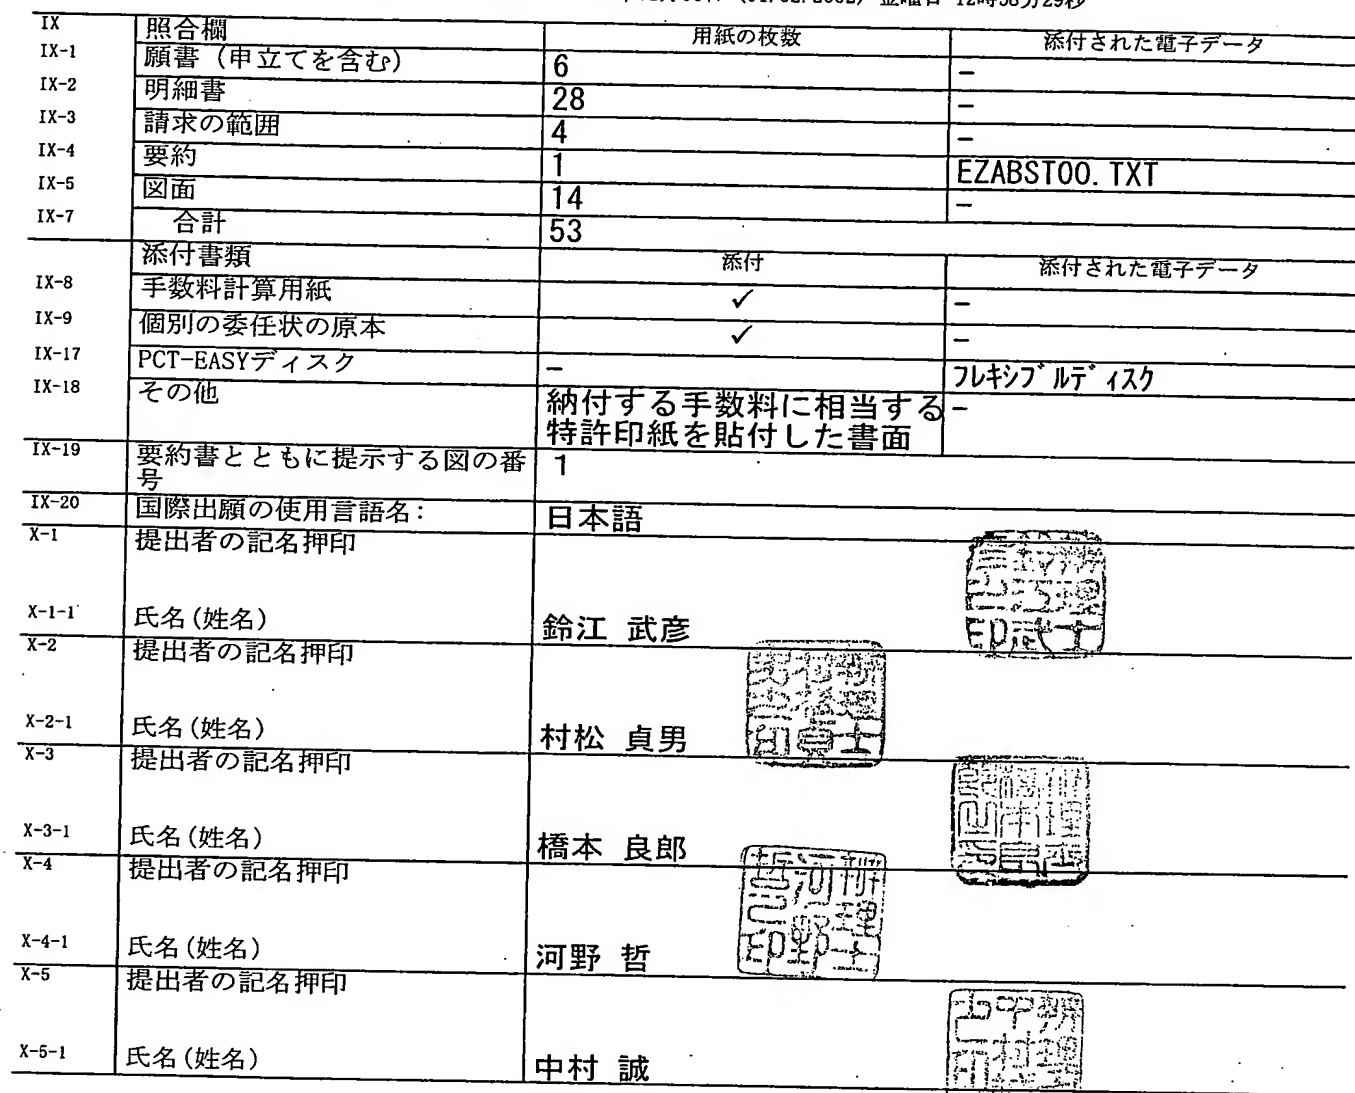 金曜日 12時58分29秒
IX 照合欄 用紙の枚数 添付された電子データ
IX-1 願書（申立てを含む） 6 -
IX-2 明細書 28 -
IX-3 請求の範囲 4 -
IX-4 要約 1 EZABST00.TXT
IX-5 図面 14 -
IX-7 合計 53
添付書類 添付 添付された電子データ
IX-8 手数料計算用紙 ✓ -
IX-9 個別の委任状の原本 ✓ -
IX-17 PCT-EASYディスク - フレキシブルディスク
IX-18 その他 納付する手数料に相当する -
特許印紙を貼付した書面
IX-19 要約書とともに提示する図の番 1
号
IX-20 国際出願の使用言語名： 日本語
X-1 提出者の記名押印
X-1-1 氏名(姓名) 鈴江 武彦
X-2 提出者の記名押印
X-2-1 氏名(姓名) 村松 貞男
X-3 提出者の記名押印
X-3-1 氏名(姓名) 橋本 良郎
X-4 提出者の記名押印
X-4-1 氏名(姓名) 河野 哲
X-5 提出者の記名押印
X-5-1 氏名(姓名) 中村 誠